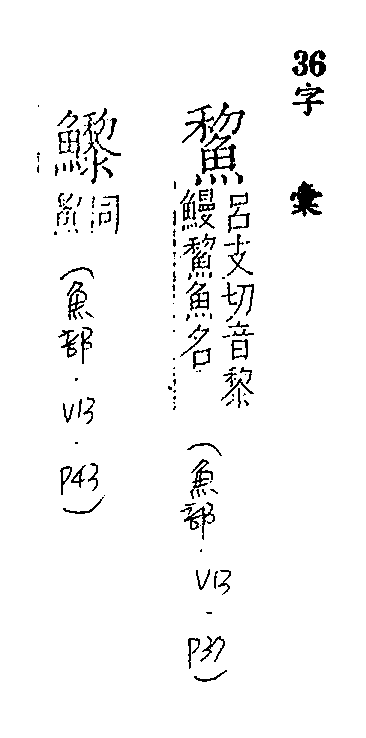 36
字彙
鯬
呂支切音黎
鰻鯬魚名
(魚部.V13.P37)
同
(魚部.V13.P43)